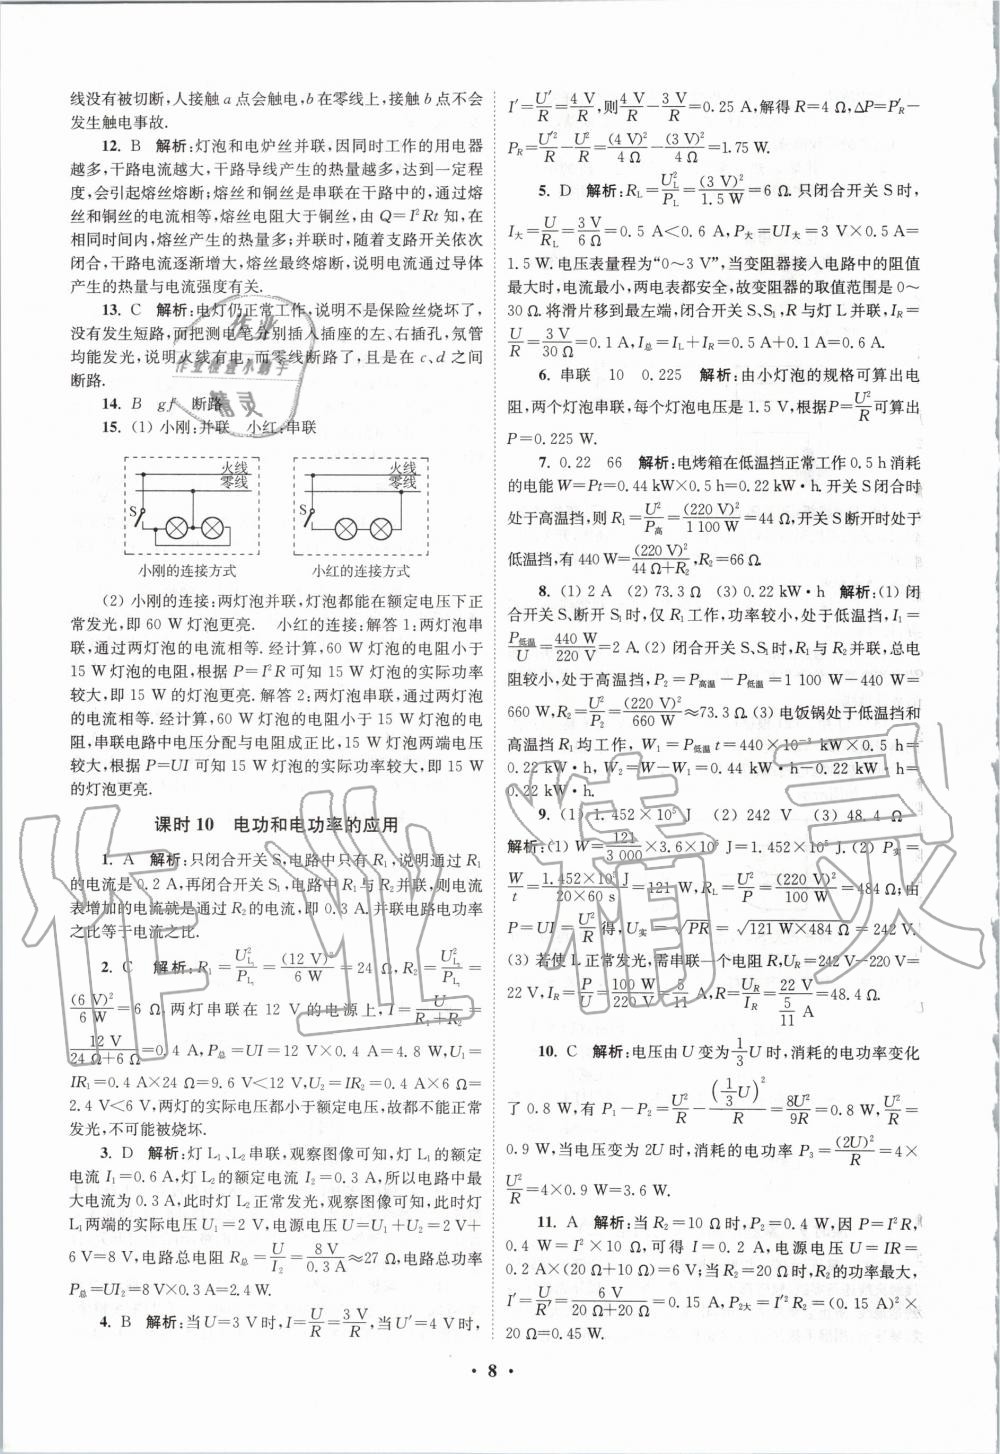 线没有被切断,人接触 a 点会触电,b 在零线上,接触 b 点不会
发生触电事故.
12. B 解析:灯泡和电炉丝并联,因同时工作的用电器
越多,干路电流越大,干路导线产生的热量越多,达到一定程
度,会引起熔丝熔断;熔丝和铜丝是串联在干路中的,通过熔
丝和铜丝的电流相等,熔丝电阻大于铜丝,由 Q=I²Rt 知,在
相同时间内,熔丝产生的热量多;并联时,随着支路开关依次
闭合,干路电流逐渐增大,熔丝最终熔断,说明电流通过导体
产生的热量与电流强度有关.
13. C 解析:电灯仍正常工作,说明不是保险丝烧坏了,
没有发生短路,而把测电笔分别插入插座的左、右插孔,氖管
均能发光,说明火线有电,而零线断路了,且是在 c、d 之间
断路.
14. B gf 断路
15. (1) 小刚:并联 小红:串联
火线 零线 S
火线 零线 S
小刚的连接方式 小红的连接方式
(2) 小刚的连接:两灯泡并联,灯泡都能在额定电压下正
常发光,即 60 W 灯泡更亮. 小红的连接:解答 1:两灯泡串
联,通过两灯泡的电流相等. 经计算,60 W 灯泡的电阻小于
15 W 灯泡的电阻,根据 P=I²R 可知 15 W 灯泡的实际功率
较大,即 15 W 的灯泡更亮. 解答 2:两灯泡串联,通过两灯泡
的电流相等. 经计算,60 W 灯泡的电阻小于 15 W 灯泡的电
阻,串联电路中电压分配与电阻成正比,15 W 灯泡两端电压
较大,根据 P=UI 可知 15 W 灯泡的实际功率较大,即 15 W
的灯泡更亮.
课时 10 电功和电功率的应用
1. A 解析:只闭合开关 S,电路中只有 R₁,说明通过 R₁
的电流是 0.2 A,再闭合开关 S₁,电路中 R₁与 R₂并联,则电流
表增加的电流就是通过 R₂的电流,即 0.3 A. 并联电路电功率
之比等于电流之比.
2. C 解析:R₁=U²L₁/PL₁=(12 V)²/6 W=24 Ω,R₂=U²L₂/PL₂=
(6 V)²/6 W=6 Ω,两灯串联在 12 V 的电源上,I=U/(R₁+R₂)=
12 V/(24 Ω+6 Ω)=0.4 A,P总=UI=12 V×0.4 A=4.8 W,U₁=
IR₁=0.4 A×24 Ω=9.6 V<12 V,U₂=IR₂=0.4 A×6 Ω=
2.4 V<6 V,两灯的实际电压都小于额定电压,故都不能正常
发光,不可能被烧坏.
3. D 解析:灯 L₁、L₂串联,观察图像可知,灯 L₁的额定
电流 I₁=0.6 A,灯 L₂的额定电流 I₂=0.3 A,所以电路中最
大电流为 0.3 A,此时灯 L₂正常发光,观察图像可知,此时灯
L₁两端的实际电压 U₁=2 V,电源电压 U=U₁+U₂=2 V+
6 V=8 V,电路总电阻 R总=U/I₂=8 V/0.3 A≈27 Ω,电路总功率
P总=UI₂=8 V×0.3 A=2.4 W.
4. B 解析:当 U=3 V 时,I=U/R=3 V/R,当 U′=4 V 时,
I′=U′/R=4 V/R,则4 V/R−3 V/R=0.25 A,解得 R=4 Ω,ΔP=P′R−
PR=U′²/R−U²/R=(4 V)²/4 Ω−(3 V)²/4 Ω=1.75 W.
5. D 解析:RL=U²L/PL=(3 V)²/1.5 W=6 Ω. 只闭合开关 S 时,
I大=U/RL=3 V/6 Ω=0.5 A<0.6 A,P大=UI大=3 V×0.5 A=
1.5 W. 电压表量程为“0～3 V”,当变阻器接入电路中的阻值
最大时,电流最小,两电表都安全,故变阻器的取值范围是 0～
30 Ω. 将滑片移到最左端,闭合开关 S、S₁,R 与灯 L 并联,IR=
U/R=3 V/30 Ω=0.1 A,I总=IL+IR=0.5 A+0.1 A=0.6 A.
6. 串联 10 0.225 解析:由小灯泡的规格可算出电
阻,两个灯泡串联,每个灯泡电压是 1.5 V,根据P=U²/R可算出
P=0.225 W.
7. 0.22 66 解析:电烤箱在低温挡正常工作 0.5 h 消耗
的电能 W=Pt=0.44 kW×0.5 h=0.22 kW·h. 开关 S闭合时
处于高温挡,则 R₁=U²/P高=(220 V)²/1 100 W=44 Ω,开关 S 断开时处于
低温挡,有 440 W=(220 V)²/(44 Ω+R₂),R₂=66 Ω.
8. (1) 2 A (2) 73.3 Ω (3) 0.22 kW·h 解析:(1) 闭
合开关 S、断开 S₁时,仅 R₁工作,功率较小,处于低温挡,I₁=
P低温/U=440 W/220 V=2 A. (2) 闭合开关 S、S₁时,R₁与 R₂并联,总电
阻较小,处于高温挡,P₂=P高温−P低温=1 100 W−440 W=
660 W,R₂=U²/P₂=(220 V)²/660 W≈73.3 Ω. (3) 电饭锅处于低温挡和
高温挡 R₁均工作, W₁=P低温 t=440×10⁻³ kW×0.5 h=
0.22 kW·h, W₂=W−W₁=0.44 kW·h−0.22 kW·h=
0.22 kW·h.
9. (1) 1.452×10⁵ J (2) 242 V (3) 48.4 Ω
解析:(1) W=121/3 000×3.6×10⁶ J=1.452×10⁵ J. (2) P实=
W/t=1.452×10⁵ J/20×60 s=121 W,RL=U²/P=(220 V)²/100 W=484 Ω;由
P=UI=U²/R得,U实=√PR=√121 W×484 Ω=242 V.
(3) 若使 L 正常发光,需串联一个电阻 R,UR=242 V−220 V=
22 V,IR=P/U=100 W/220 V=5/11 A,R=UR/IR=22 V/(5/11 A)=48.4 Ω.
10. C 解析:电压由 U 变为1/3U 时,消耗的电功率变化
了 0.8 W,有 P₁−P₂=U²/R−(1/3U)²/R=8U²/9R=0.8 W,U²/R=
0.9 W,当电压变为 2U 时,消耗的电功率 P₃=(2U)²/R=4×
U²/R=4×0.9 W=3.6 W.
11. A 解析:当 R₂=10 Ω时,P₂=0.4 W,因 P=I²R,
0.4 W=I²×10 Ω,可得 I=0.2 A,电源电压 U=IR=
0.2 A×(20 Ω+10 Ω)=6 V;当 R₂=20 Ω时,R₂的功率最大,
I′=U/R′=6 V/(20 Ω+20 Ω)=0.15 A,P₂大=I′²R₂=(0.15 A)²×
20 Ω=0.45 W.
• 8 •
作业
作业检查小助手
精灵
作业精灵